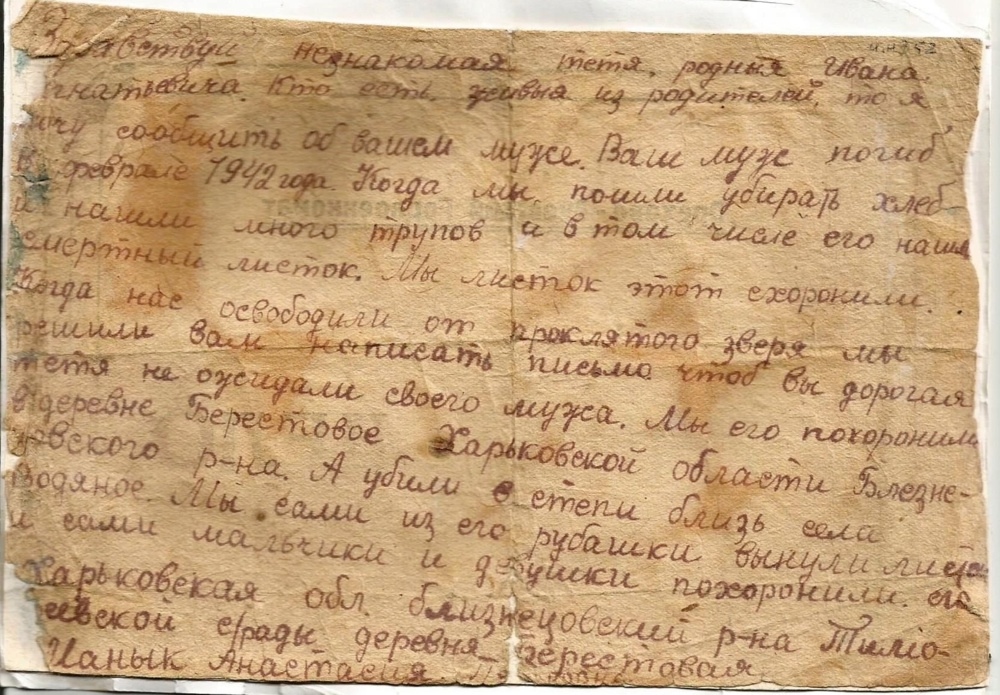 Здравствуй незнакомая тетя, родныя Ивана
гнатьевича. Кто есть живыя из родителей, то я
хочу сообщить об вашем муже. Ваш муж погиб
в феврале 1942 года. Когда мы пошли убирать хлеб
и нашли много трупов и в том числе его нашли
смертный листок. Мы листок этот схоронили.
Когда нас освободили от проклятого зверя мы
решили вам написать письмо чтоб вы дорогая
тетя не ожидали своего мужа. Мы его похоронили
в деревне Берестовое Харьковской области Блезне-
цовского р-на. А убили в степи близь села
Водяное. Мы сами из его рубашки вынули листок
и сами мальчики и девушки похоронили его
Харьковская обл. близнецовский р-на Тимо-
евской деревня Берестовая
Анастасия